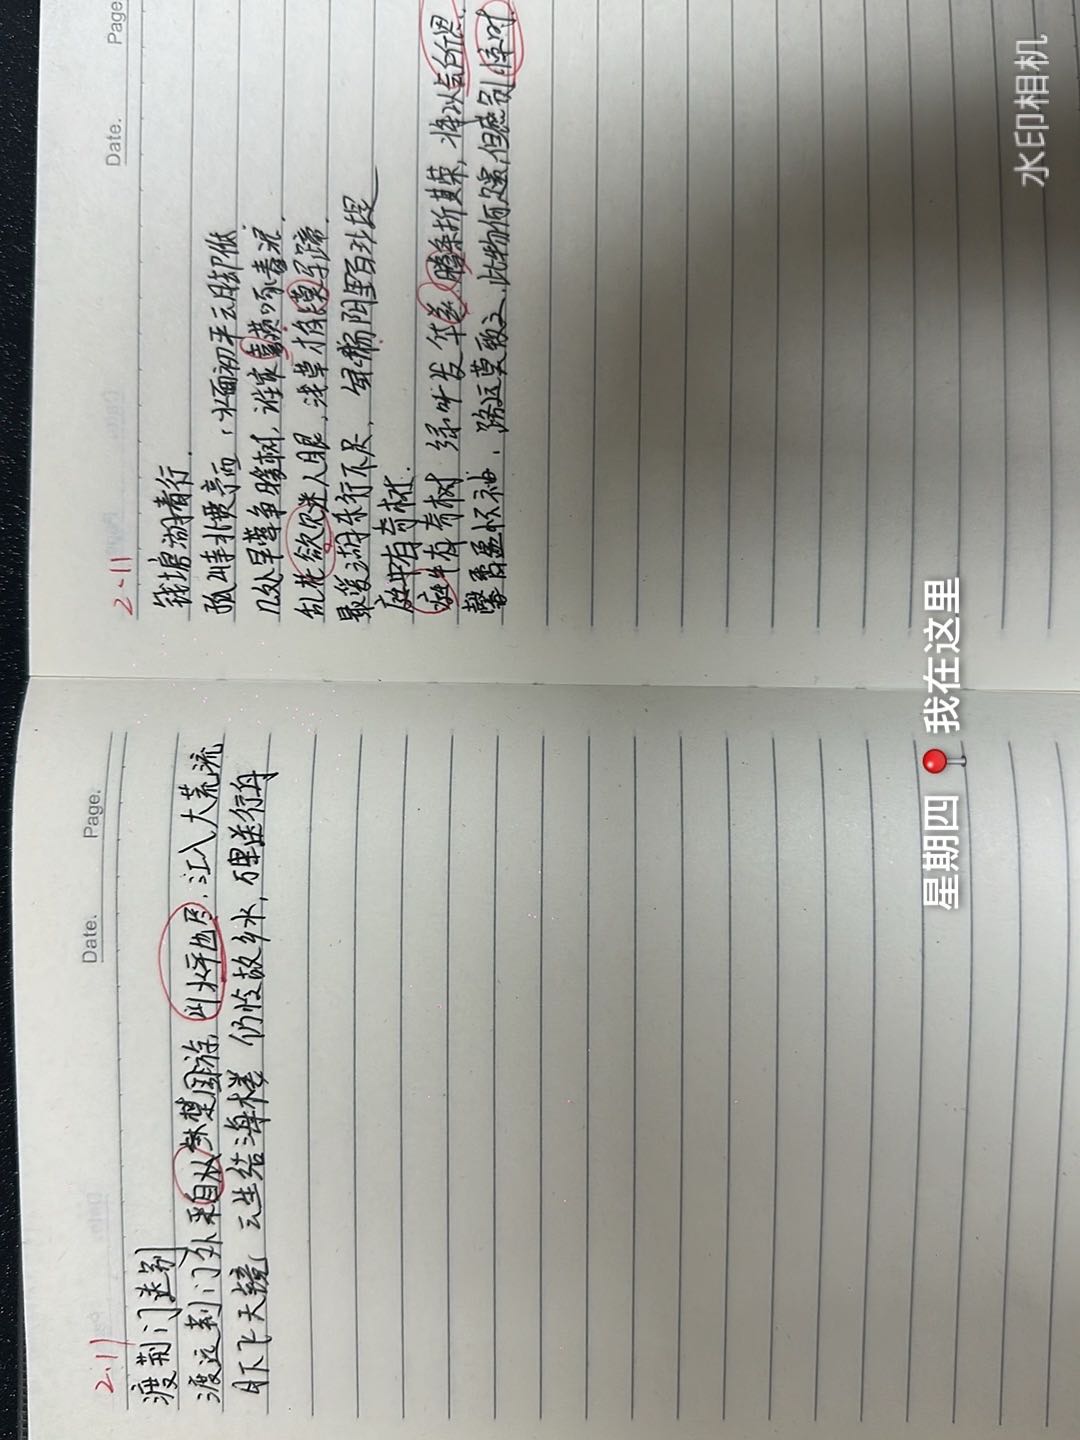 Date. Page.
2.11
渡荆门送别
渡远荆门外来自从楚国游,山水平也尽.江入大荒流
月下飞天镜,云生结海楼 仍怜故乡水,万里送行舟
Date. Page
2-11
钱塘湖春行.
孤山寺北贾亭西,水面初平云脚低
几处早莺争暖树,谁家啄春泥.
乱花欲迷人眼,浅草才能没马蹄.
最爱湖东行不足, 绿杨阴里白沙堤
庭中有奇树.
庭中有奇树 绿叶发华兹,攀条折其荣,将以所思.
馨香盈怀袖,路远莫致之,此物何足贵,但感别时
水印相机
星期四 📍 我在这里